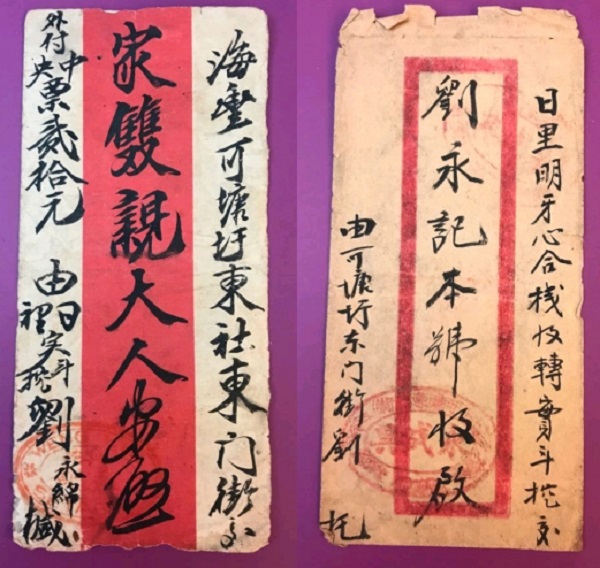 海豐可塘圩東社東门街交
家雙親大人安啟
外付中央票貳拾元 由日裡实斗挖劉永綿缄
日里明牙心合栈收轉實斗挖交
劉永記本號收啟
由可塘圩东门街劉 托